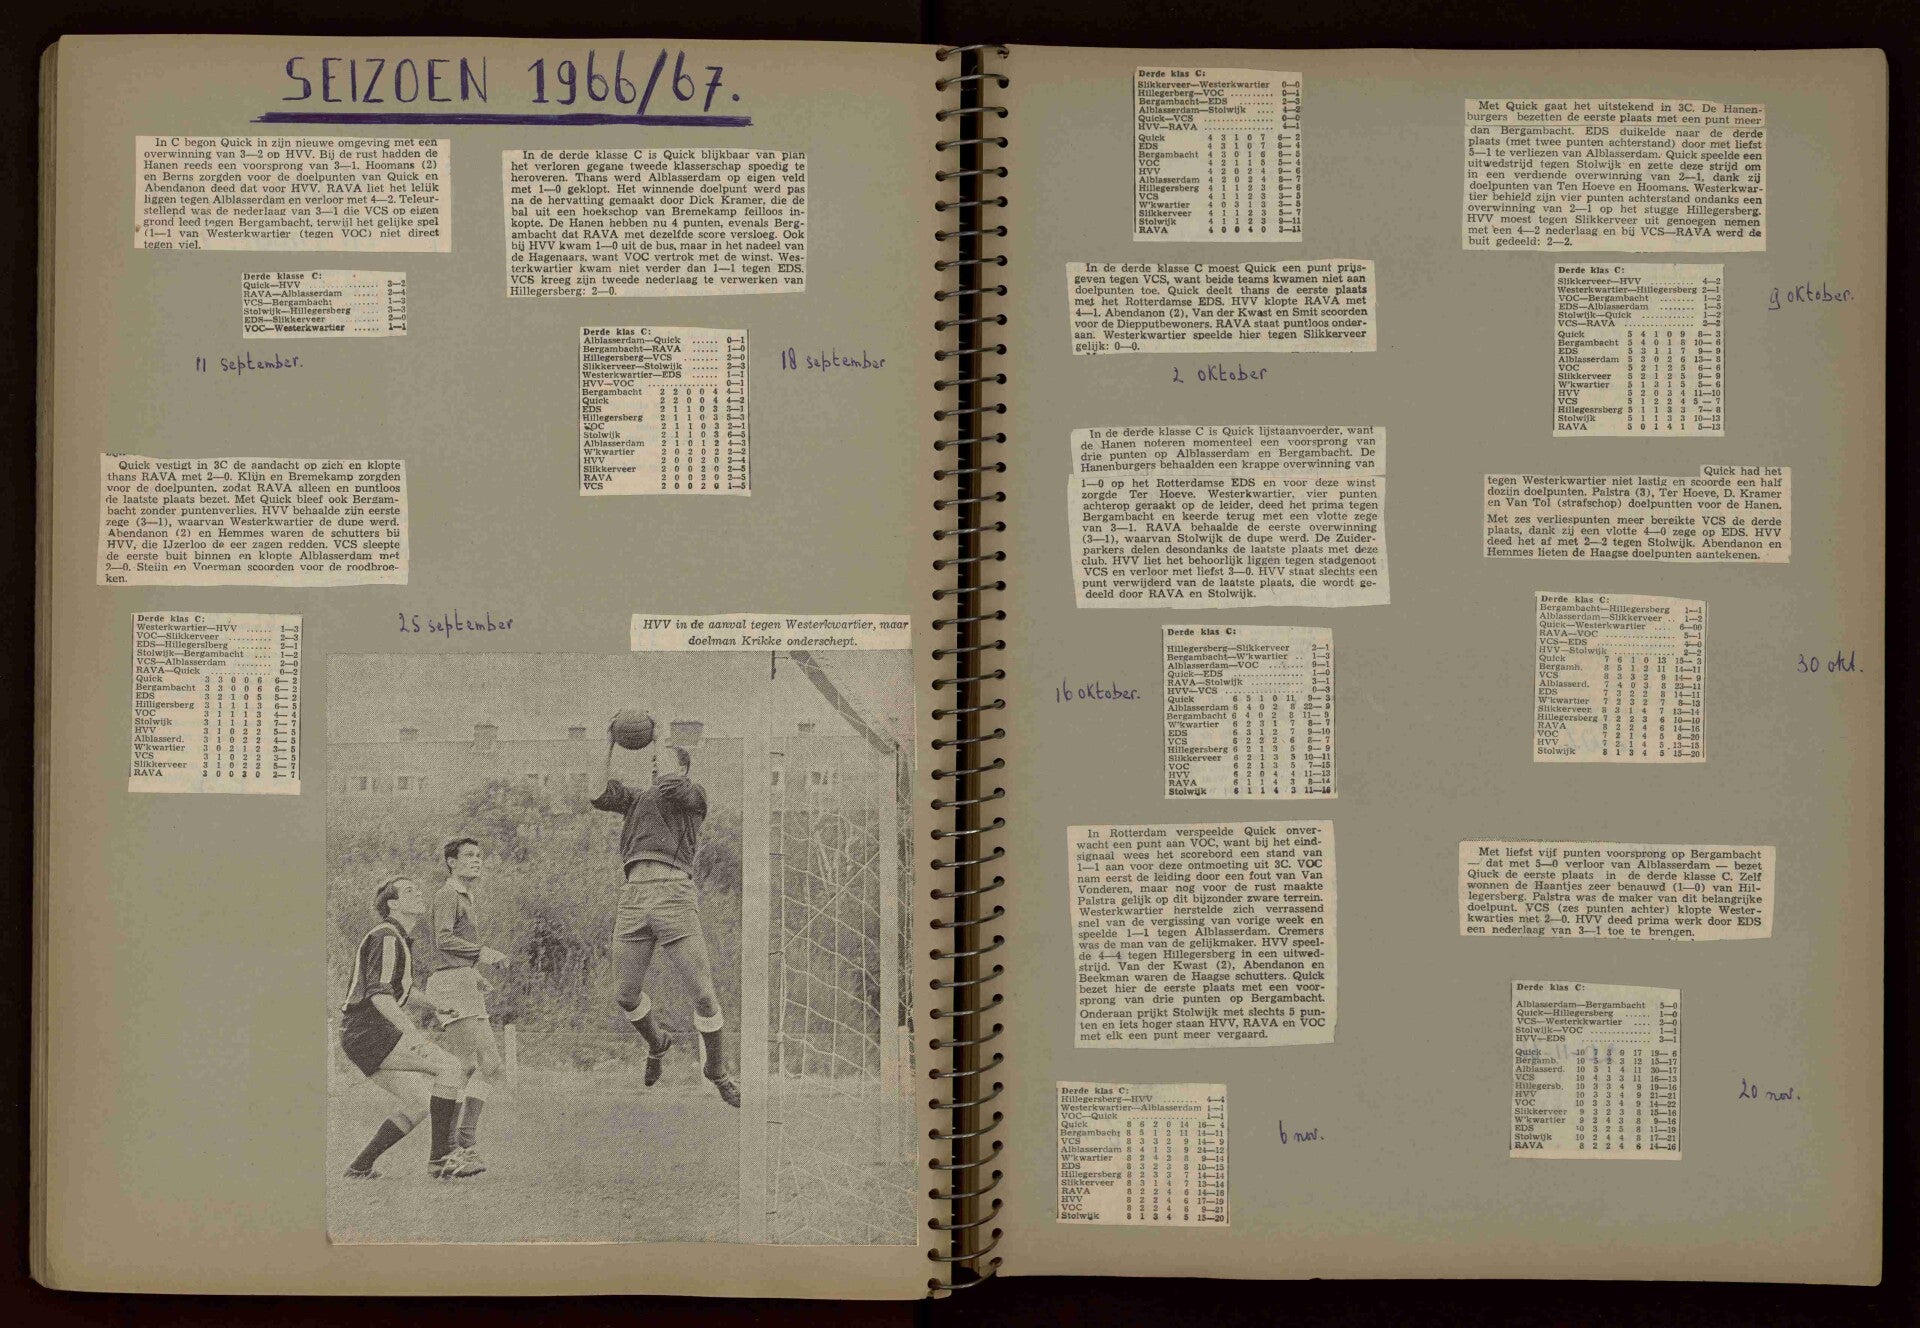 SEIZOEN 1966/67.
In C begon Quick in zijn nieuwe omgeving met een
overwinning van 3—2 op HVV. Bij de rust hadden de
Hanen reeds een voorsprong van 3—1. Hoomans (2)
en Berns zorgden voor de doelpunten van Quick en
Abendanon deed dat voor HVV. RAVA liet het lelijk
liggen tegen Alblasserdam en verloor met 4—2. Teleur-
stellend was de nederlaag van 3—1 die VCS op eigen
grond leed tegen Bergambacht, terwijl het gelijke spel
(1—1 van Westerkwartier (tegen VOC) niet direct
tegen viel.
Derde klasse C:
Quick—HVV 3—2
RAVA—Alblasserdam ..... 2—4
VCS—Bergambacht ..... 1—3
Stolwijk—Hillegersberg .... 3—3
EDS—Slikkerveer ..... 2—0
VOC—Westerkwartier .... 1—1
11 september.
Quick vestigt in 3C de aandacht op zich en klopte
thans RAVA met 2—0. Klijn en Bremekamp zorgden
voor de doelpunten, zodat RAVA alleen en puntloos
de laatste plaats bezet. Met Quick bleef ook Bergam-
bacht zonder puntenverlies. HVV behaalde zijn eerste
zege (3—1), waarvan Westerkwartier de dupe werd.
Abendanon (2) en Hemmes waren de schutters bij
HVV, die IJzerloo de eer zagen redden. VCS sleepte
de eerste buit binnen en klopte Alblasserdam met
2—0. Steijn en Voerman scoorden voor de roodbroe-
ken.
Derde klas C:
Westerkwartier—HVV ...... 1—3
VOC—Slikkerveer .......... 2—3
EDS—Hillegerslberg ........ 2—1
Stolwijk—Bergambacht .... 1—2
VCS—Alblasserdam ........ 2—0
RAVA—Quick .............. 0—2
Quick 3 3 0 0 6 6— 2
Bergambacht 3 3 0 0 6 6— 2
EDS 3 2 1 0 5 5— 2
Hilligersberg 3 1 1 1 3 6— 5
VOC 3 1 1 1 3 4— 4
Stolwijk 3 1 1 1 3 7— 7
HVV 3 1 0 2 2 5— 5
Alblasserd. 3 1 0 2 2 4— 5
W'kwartier 3 0 2 1 2 3— 5
VCS 3 1 0 2 2 3— 5
Slikkerveer 3 1 0 2 2 5— 7
RAVA 3 0 0 3 0 2— 7
25 september
In de derde klasse C is Quick blijkbaar van plan
het verloren gegane tweede klasserschap spoedig te
heroveren. Thans werd Alblasserdam op eigen veld
met 1—0 geklopt. Het winnende doelpunt werd pas
na de hervatting gemaakt door Dick Kramer, die de
bal uit een hoekschop van Bremekamp feilloos in-
kopte. De Hanen hebben nu 4 punten, evenals Berg-
ambacht dat RAVA met dezelfde score versloeg. Ook
bij HVV kwam 1—0 uit de bus, maar in het nadeel van
de Hagenaars, want VOC vertrok met de winst. Wes-
terkwartier kwam niet verder dan 1—1 tegen EDS.
VCS kreeg zijn tweede nederlaag te verwerken van
Hillegersberg: 2—0.
Derde klas C:
Alblasserdam—Quick ...... 0—1
Bergambacht—RAVA ...... 1—0
Hillegersberg—VCS ...... 2—0
Slikkerveer—Stolwijk ...... 2—3
Westerkwartier—EDS ...... 1—1
HVV—VOC .................. 0—1
Bergambacht 2 2 0 0 4 4—1
Quick 2 2 0 0 4 4—2
EDS 2 1 1 0 3 3—1
Hillegersberg 2 1 1 0 3 5—3
VOC 2 1 1 0 3 2—1
Stolwijk 2 1 1 0 3 6—5
Alblasserdam 2 1 0 1 2 4—3
W'kwartier 2 0 2 0 2 2—2
HVV 2 0 0 2 0 2—4
Slikkerveer 2 0 0 2 0 2—5
RAVA 2 0 0 2 0 2—5
VCS 2 0 0 2 0 1—5
18 september
HVV in de aanval tegen Westerkwartier, maar
doelman Krikke onderschept.
Derde klas C:
Slikkerveer—Westerkwartier 0—0
Hillegerberg—VOC .......... 0—1
Bergambacht—EDS ........ 2—3
Alblasserdam—Stolwijk .... 4—2
Quick—VCS ................ 0—0
HVV—RAVA ................ 4—1
Quick 4 3 1 0 7 6— 2
EDS 4 3 1 0 7 8— 4
Bergambacht 4 3 0 1 6 8— 5
VOC 4 2 1 1 5 5— 4
HVV 4 2 0 2 4 9— 6
Alblasserdam 4 2 0 2 4 8— 7
Hillegersberg 4 1 1 2 3 6— 6
VCS 4 1 1 2 3 3— 5
W'kwartier 4 0 3 1 3 3— 5
Slikkerveer 4 1 1 2 3 5— 7
Stolwijk 4 1 1 2 3 9—11
RAVA 4 0 0 4 0 3—11
In de derde klasse C moest Quick een punt prijs-
geven tegen VCS, want beide teams kwamen niet aan
doelpunten toe. Quick deelt thans de eerste plaats
met het Rotterdamse EDS. HVV klopte RAVA met
4—1. Abendanon (2), Van der Kwast en Smit scoorden
voor de Diepputbewoners. RAVA staat puntloos onder-
aan. Westerkwartier speelde hier tegen Slikkerveer
gelijk: 0—0.
2 oktober
In de derde klasse C is Quick lijstaanvoerder, want
de Hanen noteren momenteel een voorsprong van
drie punten op Alblasserdam en Bergambacht. De
Hanenburgers behaalden een krappe overwinning van
1—0 op het Rotterdamse EDS en voor deze winst
zorgde Ter Hoeve. Westerkwartier, vier punten
achterop geraakt op de leider, deed het prima tegen
Bergambacht en keerde terug met een vlotte zege
van 3—1. RAVA behaalde de eerste overwinning
(3—1), waarvan Stolwijk de dupe werd. De Zuider-
parkers delen desondanks de laatste plaats met deze
club. HVV liet het behoorlijk liggen tegen stadgenoot
VCS en verloor met liefst 3—0. HVV staat slechts een
punt verwijderd van de laatste plaats, die wordt ge-
deeld door RAVA en Stolwijk.
Derde klas C:
Hillegersberg—Slikkerveer 2—1
Bergambacht—W'kwartier .. 1—3
Alblasserdam—VOC ........ 9—1
Quick—EDS ................ 1—0
RAVA—Stolwijk ............ 3—1
HVV—VCS .................. 0—3
Quick 6 5 1 0 11 9— 3
Alblasserdam 6 4 0 2 8 22— 9
Bergambacht 6 4 0 2 8 11— 9
W'kwartier 6 2 3 1 7 8— 7
EDS 6 3 1 2 7 9—10
VCS 6 2 2 2 6 8— 7
Hillegersberg 6 2 1 3 5 9— 9
Slikkerveer 6 2 1 3 5 10—11
VOC 6 2 1 3 5 7—15
HVV 6 2 0 4 4 11—13
RAVA 6 1 1 4 3 8—14
Stolwijk 6 1 1 4 3 11—16
16 oktober.
In Rotterdam verspeelde Quick onver-
wacht een punt aan VOC, want bij het eind-
signaal wees het scorebord een stand van
1—1 aan voor deze ontmoeting uit 3C. VOC
nam eerst de leiding door een fout van Van
Vonderen, maar nog voor de rust maakte
Palstra gelijk op dit bijzonder zware terrein.
Westerkwartier herstelde zich verrassend
snel van de vergissing van vorige week en
speelde 1—1 tegen Alblasserdam. Cremers
was de man van de gelijkmaker. HVV speel-
de 4—4 tegen Hillegersberg in een uitwed-
strijd. Van der Kwast (2), Abendanon en
Beekman waren de Haagse schutters. Quick
bezet hier de eerste plaats met een voor-
sprong van drie punten op Bergambacht.
Onderaan prijkt Stolwijk met slechts 5 pun-
ten en iets hoger staan HVV, RAVA en VOC
met elk een punt meer vergaard.
Derde klas C:
Hillegersberg—HVV ........ 4—4
Westerkwartier—Alblasserdam 1—1
VOC—Quick ................ 1—1
Quick 8 6 2 0 14 16— 4
Bergambacht 8 5 1 2 11 14—11
VCS 8 3 3 2 9 14— 9
Alblasserdam 8 4 1 3 9 24—12
W'kwartier 8 2 4 2 8 9—14
EDS 8 3 2 3 8 10—15
Hillegersberg 8 2 3 3 7 14—14
Slikkerveer 8 3 1 4 7 13—14
RAVA 8 2 2 4 6 14—16
HVV 8 2 2 4 6 17—19
VOC 8 2 2 4 6 9—21
Stolwijk 8 1 3 4 5 15—20
6 nov.
Met Quick gaat het uitstekend in 3C. De Hanen-
burgers bezetten de eerste plaats met een punt meer
dan Bergambacht. EDS duikelde naar de derde
plaats (met twee punten achterstand) door met liefst
5—1 te verliezen van Alblasserdam. Quick speelde een
uitwedstrijd tegen Stolwijk en zette deze strijd om
in een verdiende overwinning van 2—1, dank zij
doelpunten van Ten Hoeve en Hoomans. Westerkwar-
tier behield zijn vier punten achterstand ondanks een
overwinning van 2—1 op het stugge Hillegersberg.
HVV moest tegen Slikkerveer uit genoegen nemen
met een 4—2 nederlaag en bij VCS—RAVA werd de
buit gedeeld: 2—2.
Derde klas C:
Slikkerveer—HVV .......... 4—2
Westerkwartier—Hillegersberg 2—1
VOC—Bergambacht ........ 1—2
EDS—Alblasserdam ........ 1—5
Stolwijk—Quick ............ 1—2
VCS—RAVA ................ 2—2
Quick 5 4 1 0 9 8— 3
Bergambacht 5 4 0 1 8 10— 6
EDS 5 3 1 1 7 9— 9
Alblasserdam 5 3 0 2 6 13— 8
VOC 5 2 1 2 5 6— 6
Slikkerveer 5 2 1 2 5 9— 9
W'kwartier 5 1 3 1 5 5— 6
HVV 5 2 0 3 4 11—10
VCS 5 1 2 2 4 5— 7
Hillegesrsberg 5 1 1 3 3 7— 8
Stolwijk 5 1 1 3 3 10—13
RAVA 5 0 1 4 1 5—13
9 oktober.
Quick had het
tegen Westerkwartier niet lastig en scoorde een half
dozijn doelpunten. Palstra (3), Ter Hoeve, D. Kramer
en Van Tol (strafschop) doelpuntten voor de Hanen.
Met zes verliespunten meer bereikte VCS de derde
plaats, dank zij een vlotte 4—0 zege op EDS. HVV
deed het af met 2—2 tegen Stolwijk. Abendanon en
Hemmes lieten de Haagse doelpunten aantekenen.
Derde klas C:
Bergambacht—Hillegersberg 1—1
Alblasserdam—Slikkerveer .. 1—2
Quick—Westerkwartier .... 6—00
RAVA—VOC ................ 5—1
VCS—EDS .................. 4—0
HVV—Stolwijk .............. 2—2
Quick 7 6 1 0 13 15— 3
Bergamb. 8 5 1 2 11 14—11
VCS 8 3 3 2 9 14— 9
Alblasserd. 7 4 0 3 8 23—11
EDS 7 3 2 2 8 14—11
W'kwartier 7 2 3 2 7 8—13
Slikkerveer 8 3 1 4 7 13—14
Hillegersberg 7 2 2 3 6 10—10
RAVA 8 2 2 4 6 14—16
VOC 7 2 1 4 5 8—20
HVV 7 2 1 4 5 13—15
Stolwijk 8 1 3 4 5 15—20
30 okt.
Met liefst vijf punten voorsprong op Bergambacht
— dat met 5—0 verloor van Alblasserdam — bezet
Qiuck de eerste plaats in de derde klasse C. Zelf
wonnen de Haantjes zeer benauwd (1—0) van Hil-
legersberg. Palstra was de maker van dit belangrijke
doelpunt. VCS (zes punten achter) klopte Wester-
kwarties met 2—0. HVV deed prima werk door EDS
een nederlaag van 3—1 toe te brengen.
Derde klas C:
Alblasserdam—Bergambacht 5—0
Quick—Hillegersberg ...... 1—0
VCS—Westerkkwartier .... 2—0
Stolwijk—VOC .............. 1—1
HVV—EDS .................. 3—1
Quick 10 7 3 0 17 19— 6
Bergamb. 10 5 2 3 12 15—17
Alblasserd. 10 5 1 4 11 30—17
VCS 10 4 3 3 11 16—13
Hillegersb. 10 3 3 4 9 19—16
HVV 10 3 3 4 9 21—21
VOC 10 3 3 4 9 14—22
Slikkerveer 9 3 2 3 8 15—16
W'kwartier 9 2 4 3 8 9—16
EDS 10 3 2 5 8 11—19
Stolwijk 10 2 4 4 8 17—21
RAVA 8 2 2 4 6 14—16
20 nov.